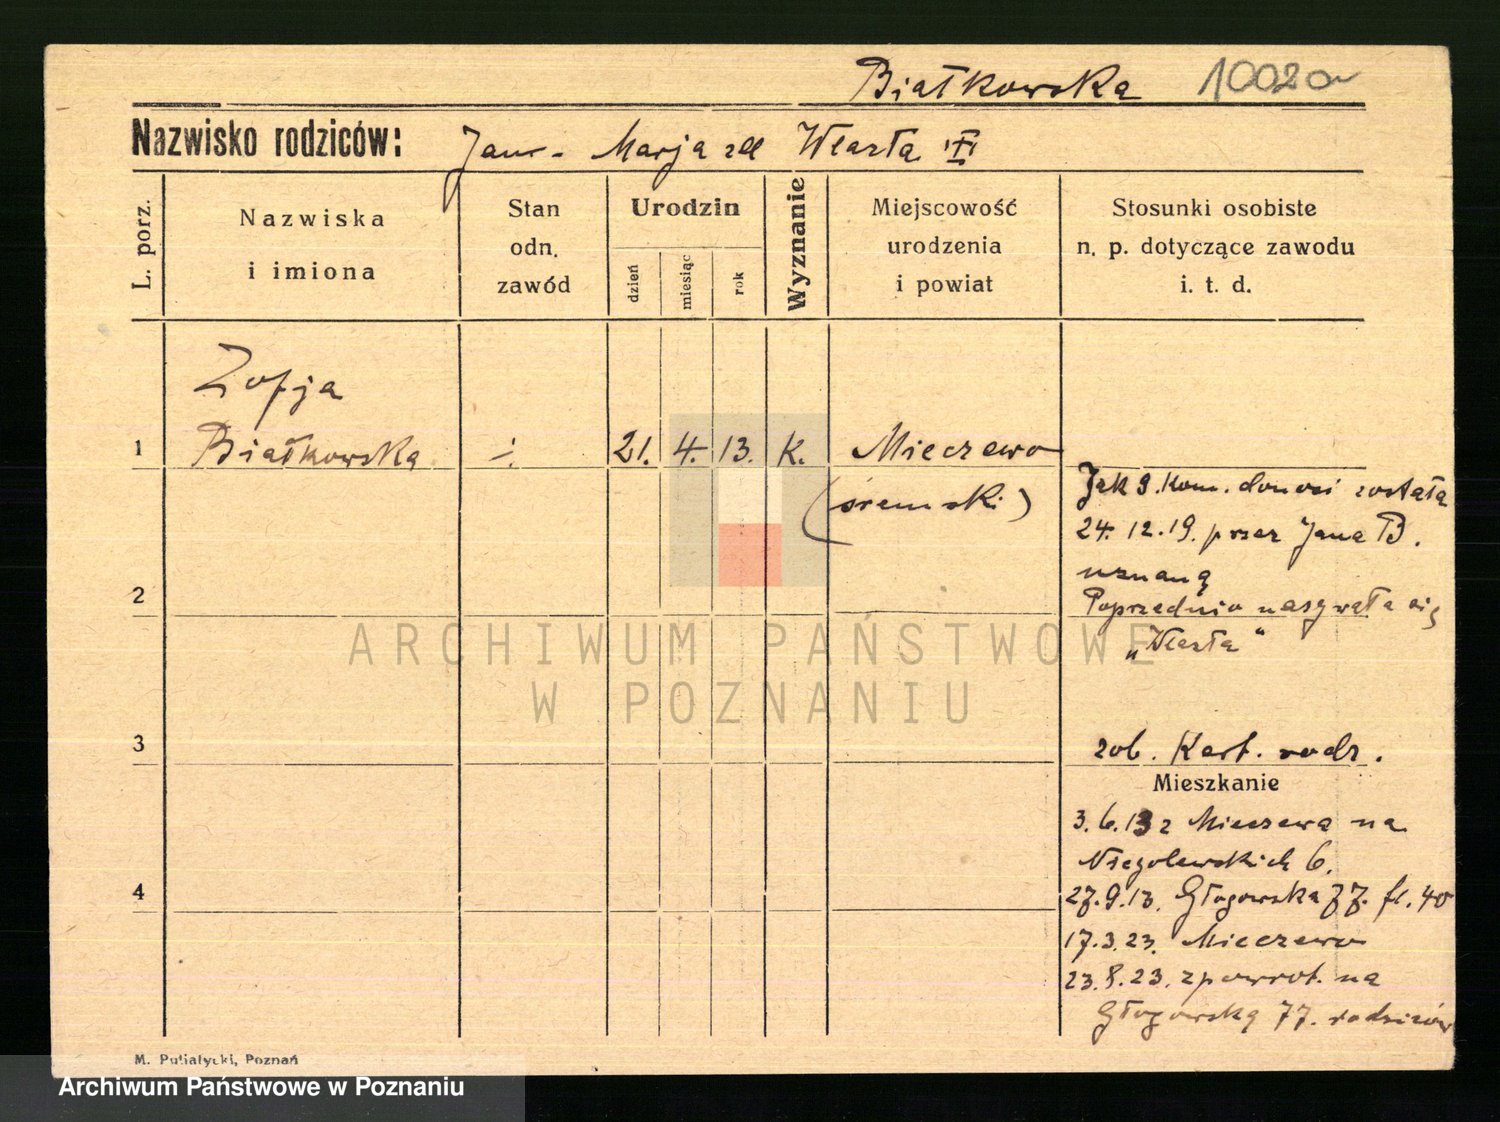 Białkowska 10020
Nazwisko rodziców: Jan - Marja zd Wlazła
L. porz.
Nazwiska
i imiona
Stan
odn.
zawód
Urodzin
dzień
miesiąc
rok
Wyznanie
Miejscowość
urodzenia
i powiat
Stosunki osobiste
n. p. dotyczące zawodu
i. t. d.
Zofja
1 Białkowska ./. 21. 4. 13. K. Mieczewo
(śremski)
Jak 9. kom. donosi została
24. 12. 19. przez Jana B.
uznaną
2
Poprzednio nazywała się
„Wlazła"
ARCHIWUM PAŃSTWOWE
W POZNANIU
3
zob. Kart. rodz.
Mieszkanie
3. 6. 13 z Mieczewa na
Niegolewskich 6.
4
27. 9. 13. Głogowska 77. fl. 40
17. 3. 23. Mieczewo
23. 8. 23. zpowrot. na
Głogowską 77. rodziców
M. Putiatycki, Poznań
Archiwum Państwowe w Poznaniu